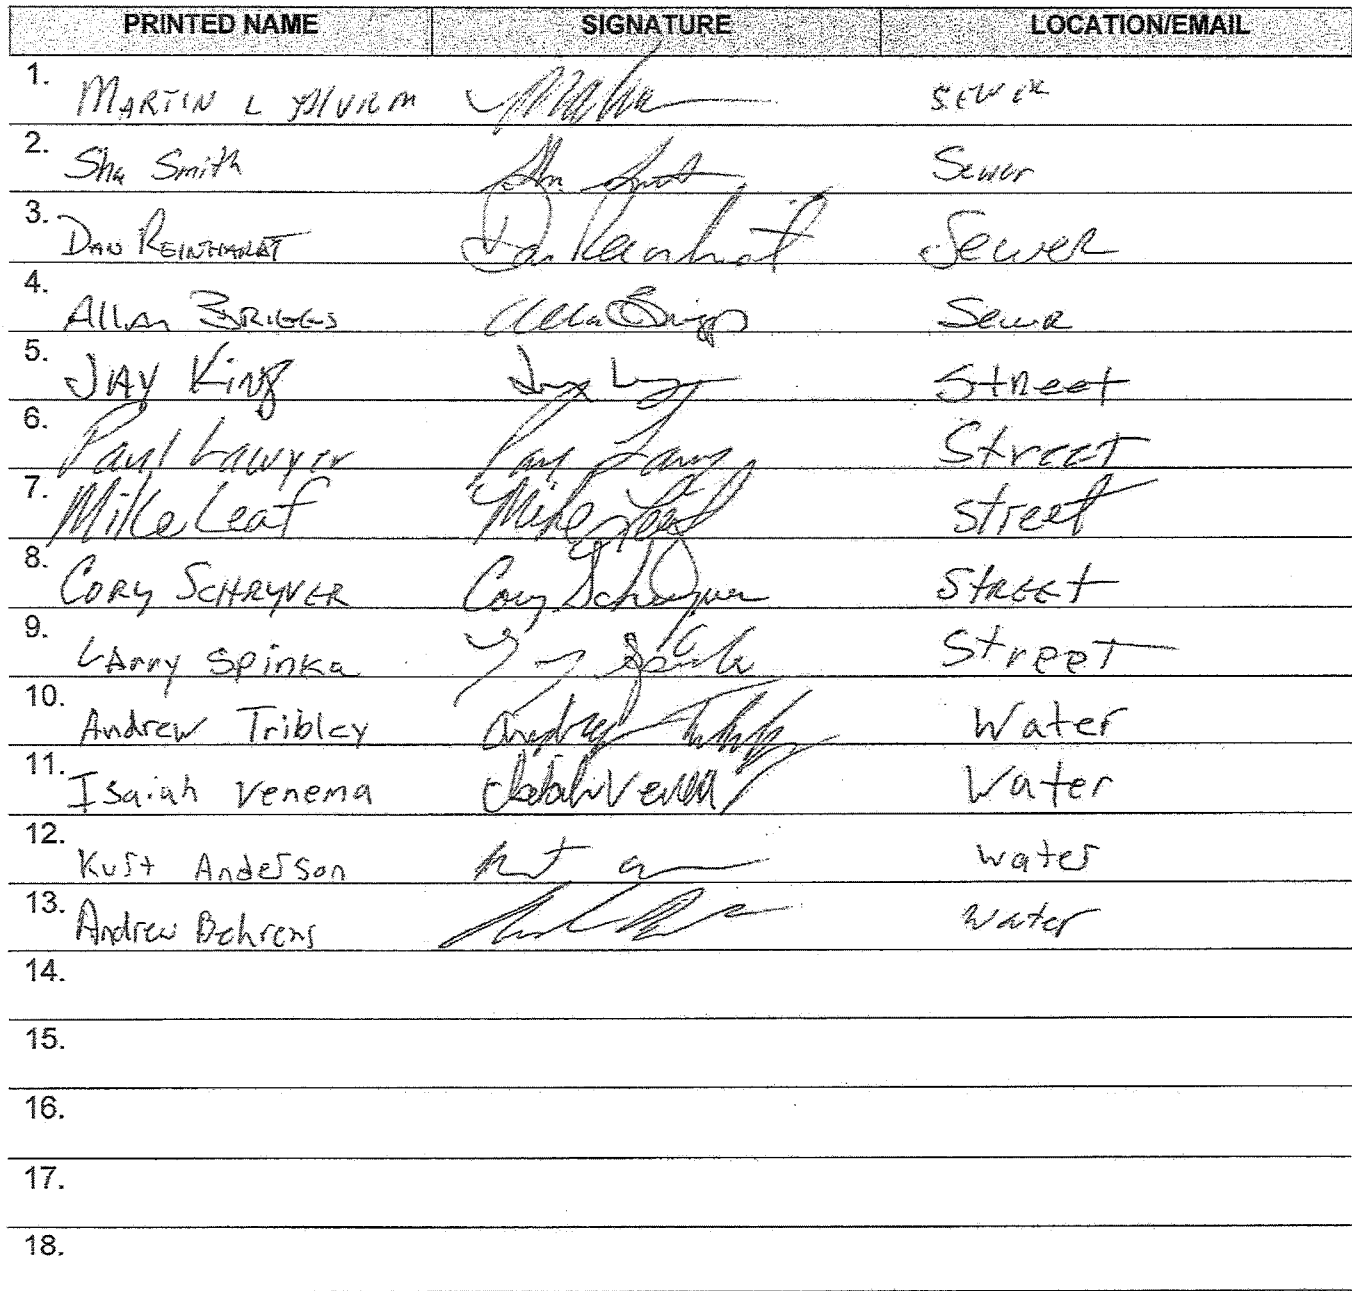 PRINTED NAME SIGNATURE LOCATION/EMAIL
1. MARTIN L SEWER
2. Sha Smith Sewer
3. DAN REINHARDT Dan Reinhardt Sewer
4. Allan BRIGGS Sewer
5. JAY King Street
6. Paul Lawyer Street
7. Mike Leaf Mike Leaf street
8. CORY SCHRYVER Cory Schryver STREET
9. LArry Spinka Street
10. Andrew Tribley Water
11. Isaiah Venema Water
12. Kurt Anderson water
13. Andrew Behrens water
14.
15.
16.
17.
18.